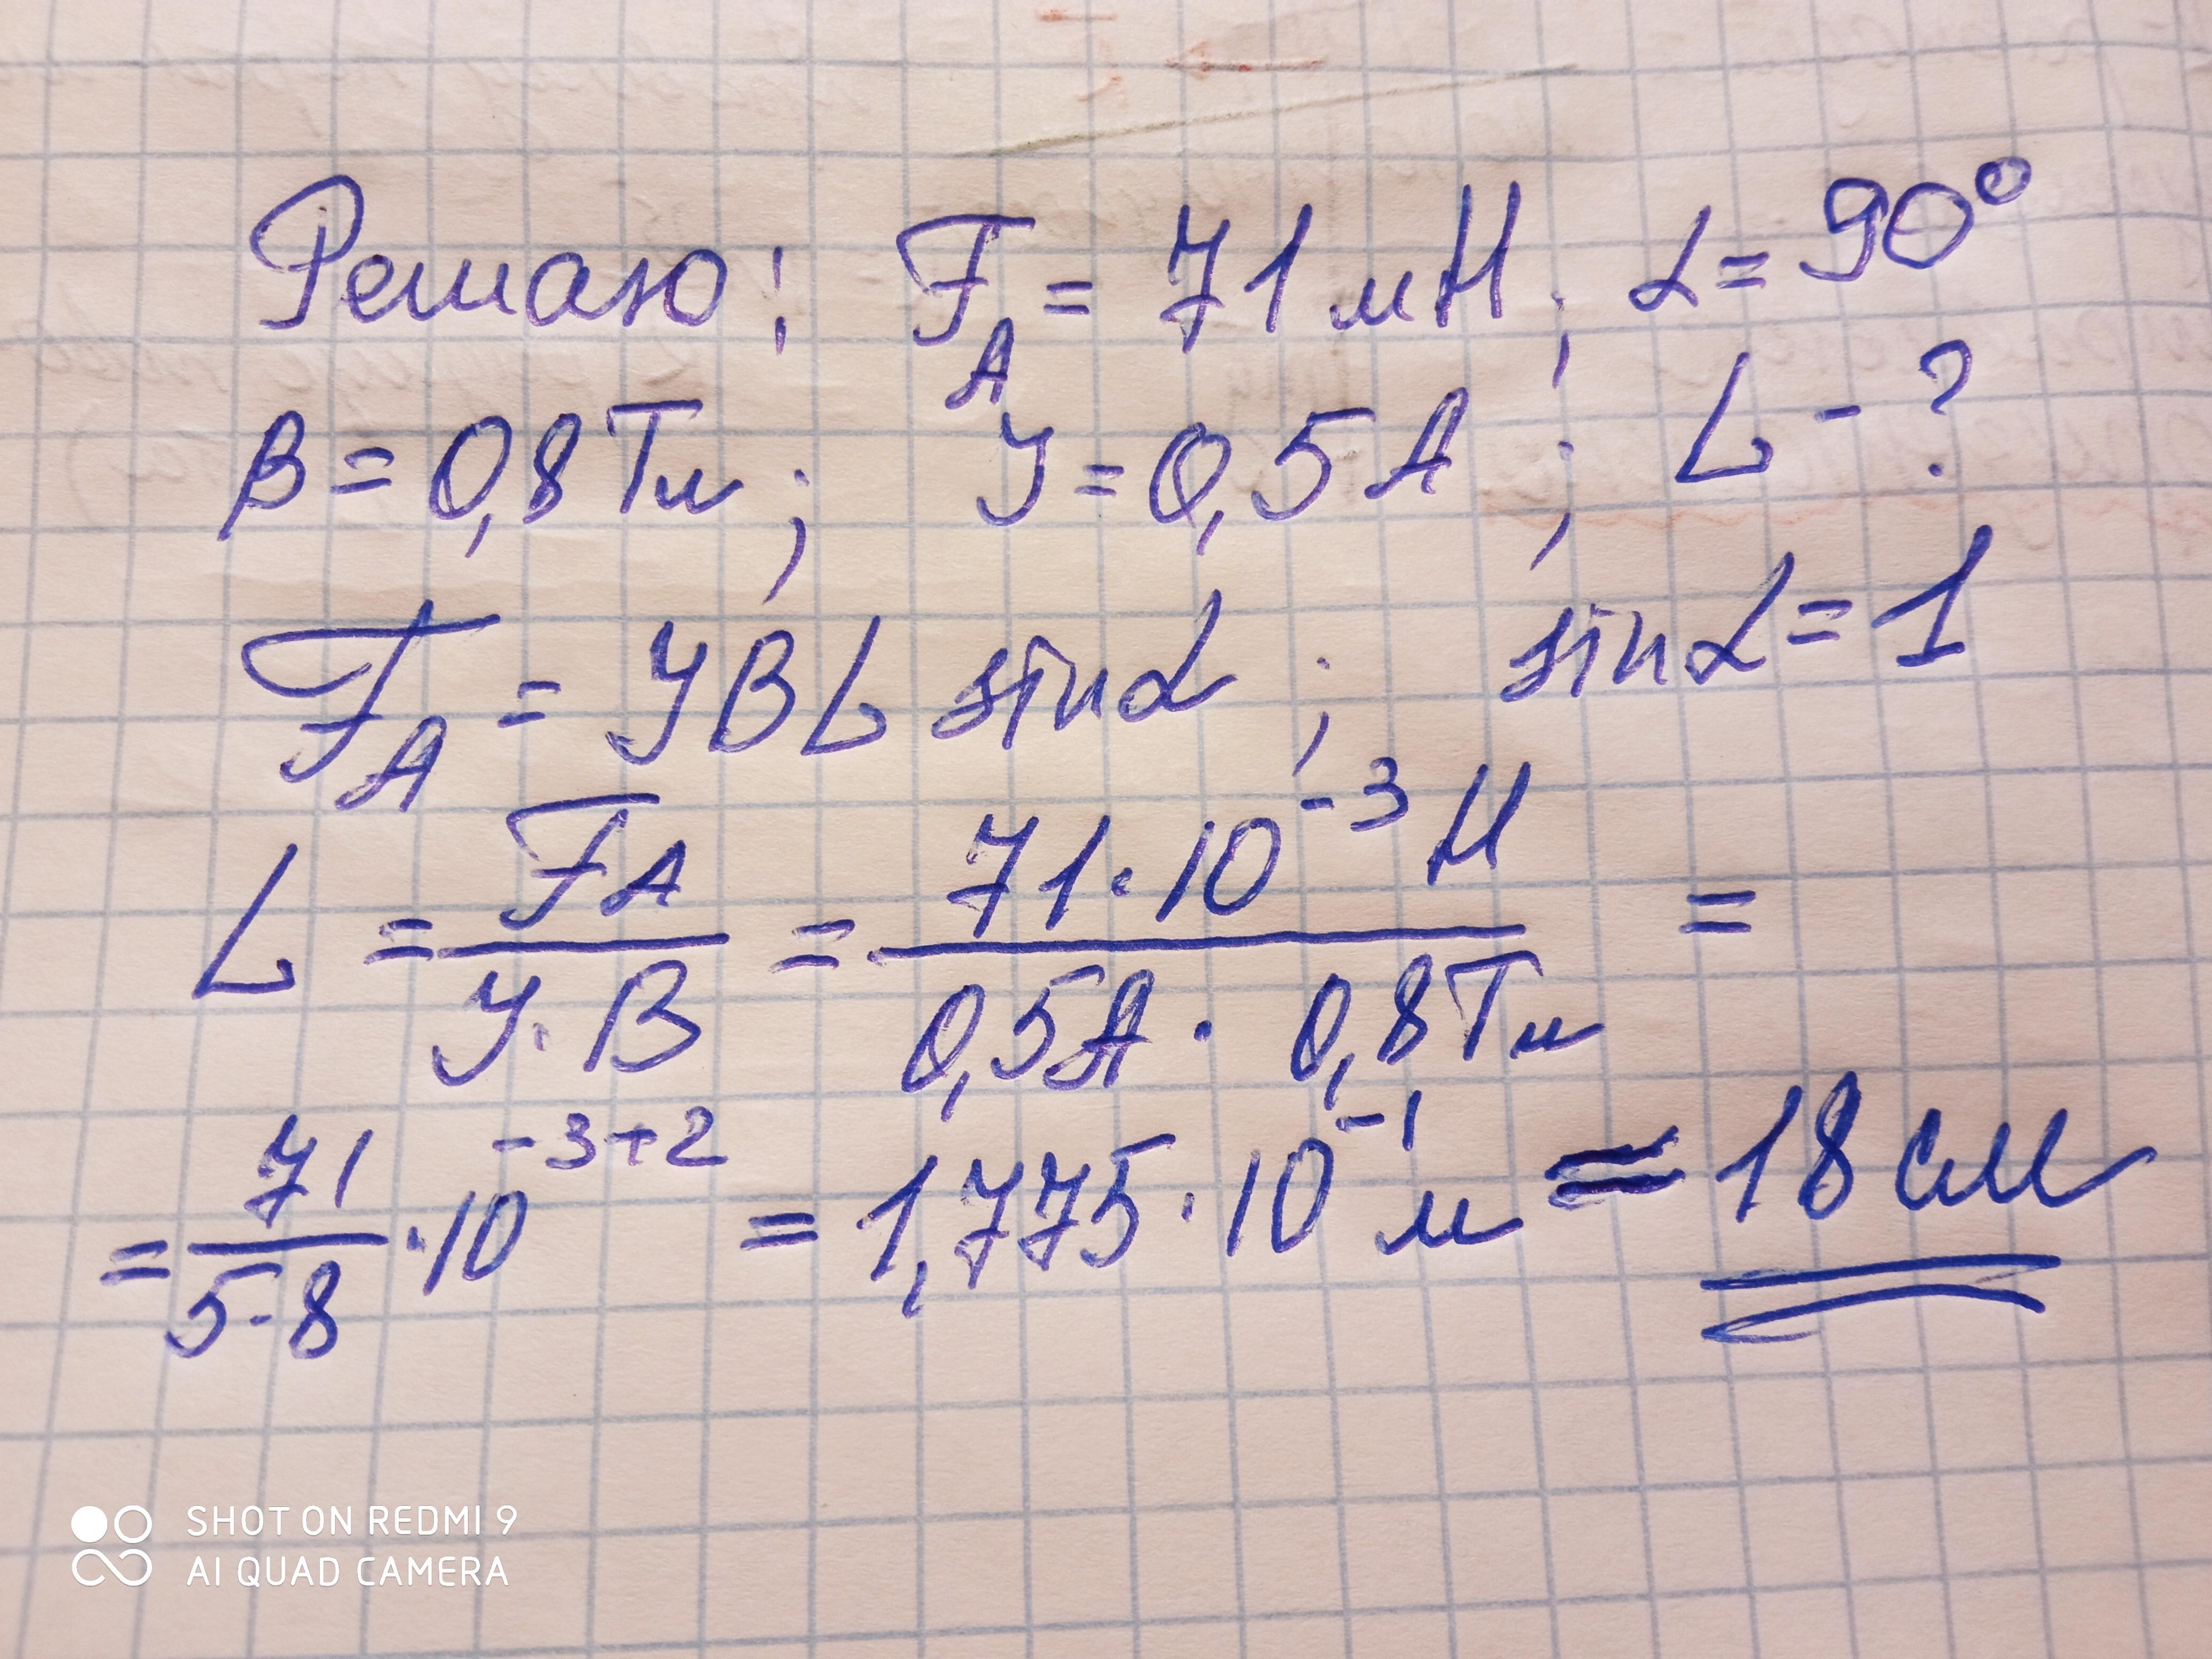 Решаю; F_A = 71 мН; α = 90°
B = 0,8 Тл; J = 0,5 A; L - ?
F_A = J B L sinα; sinα = 1
L = F_A / (J · B) = 71·10^-3 Н / (0,5A · 0,8Тл) =
= 71 / (5·8) ·10^(-3+2) = 1,775·10^-1 м = 18 см
SHOT ON REDMI 9
AI QUAD CAMERA